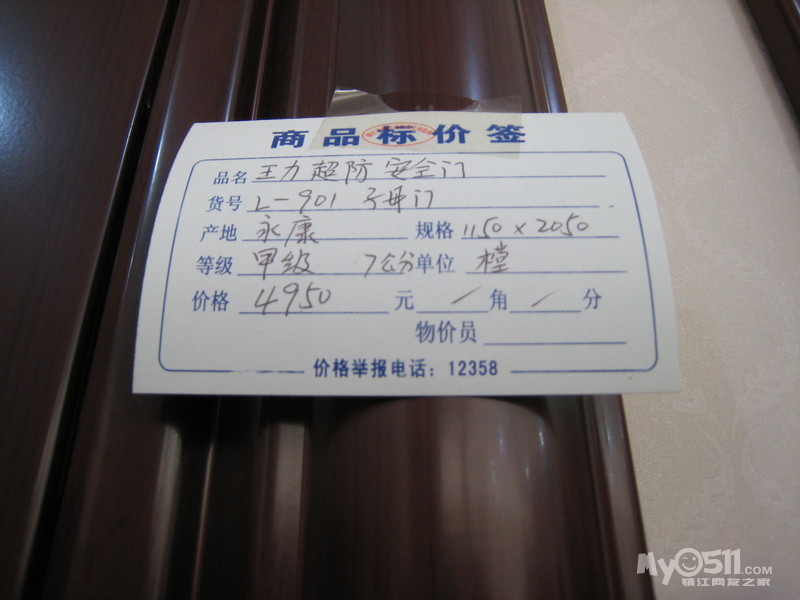 商品标价签
品名 王力超防安全门
货号 L-901 子母门
产地 永康 规格 1150×2050
等级 甲级 7公分 单位 樘
价格 4950 元 / 角 / 分
物价员
价格举报电话：12358
My0511.COM
镇江网友之家